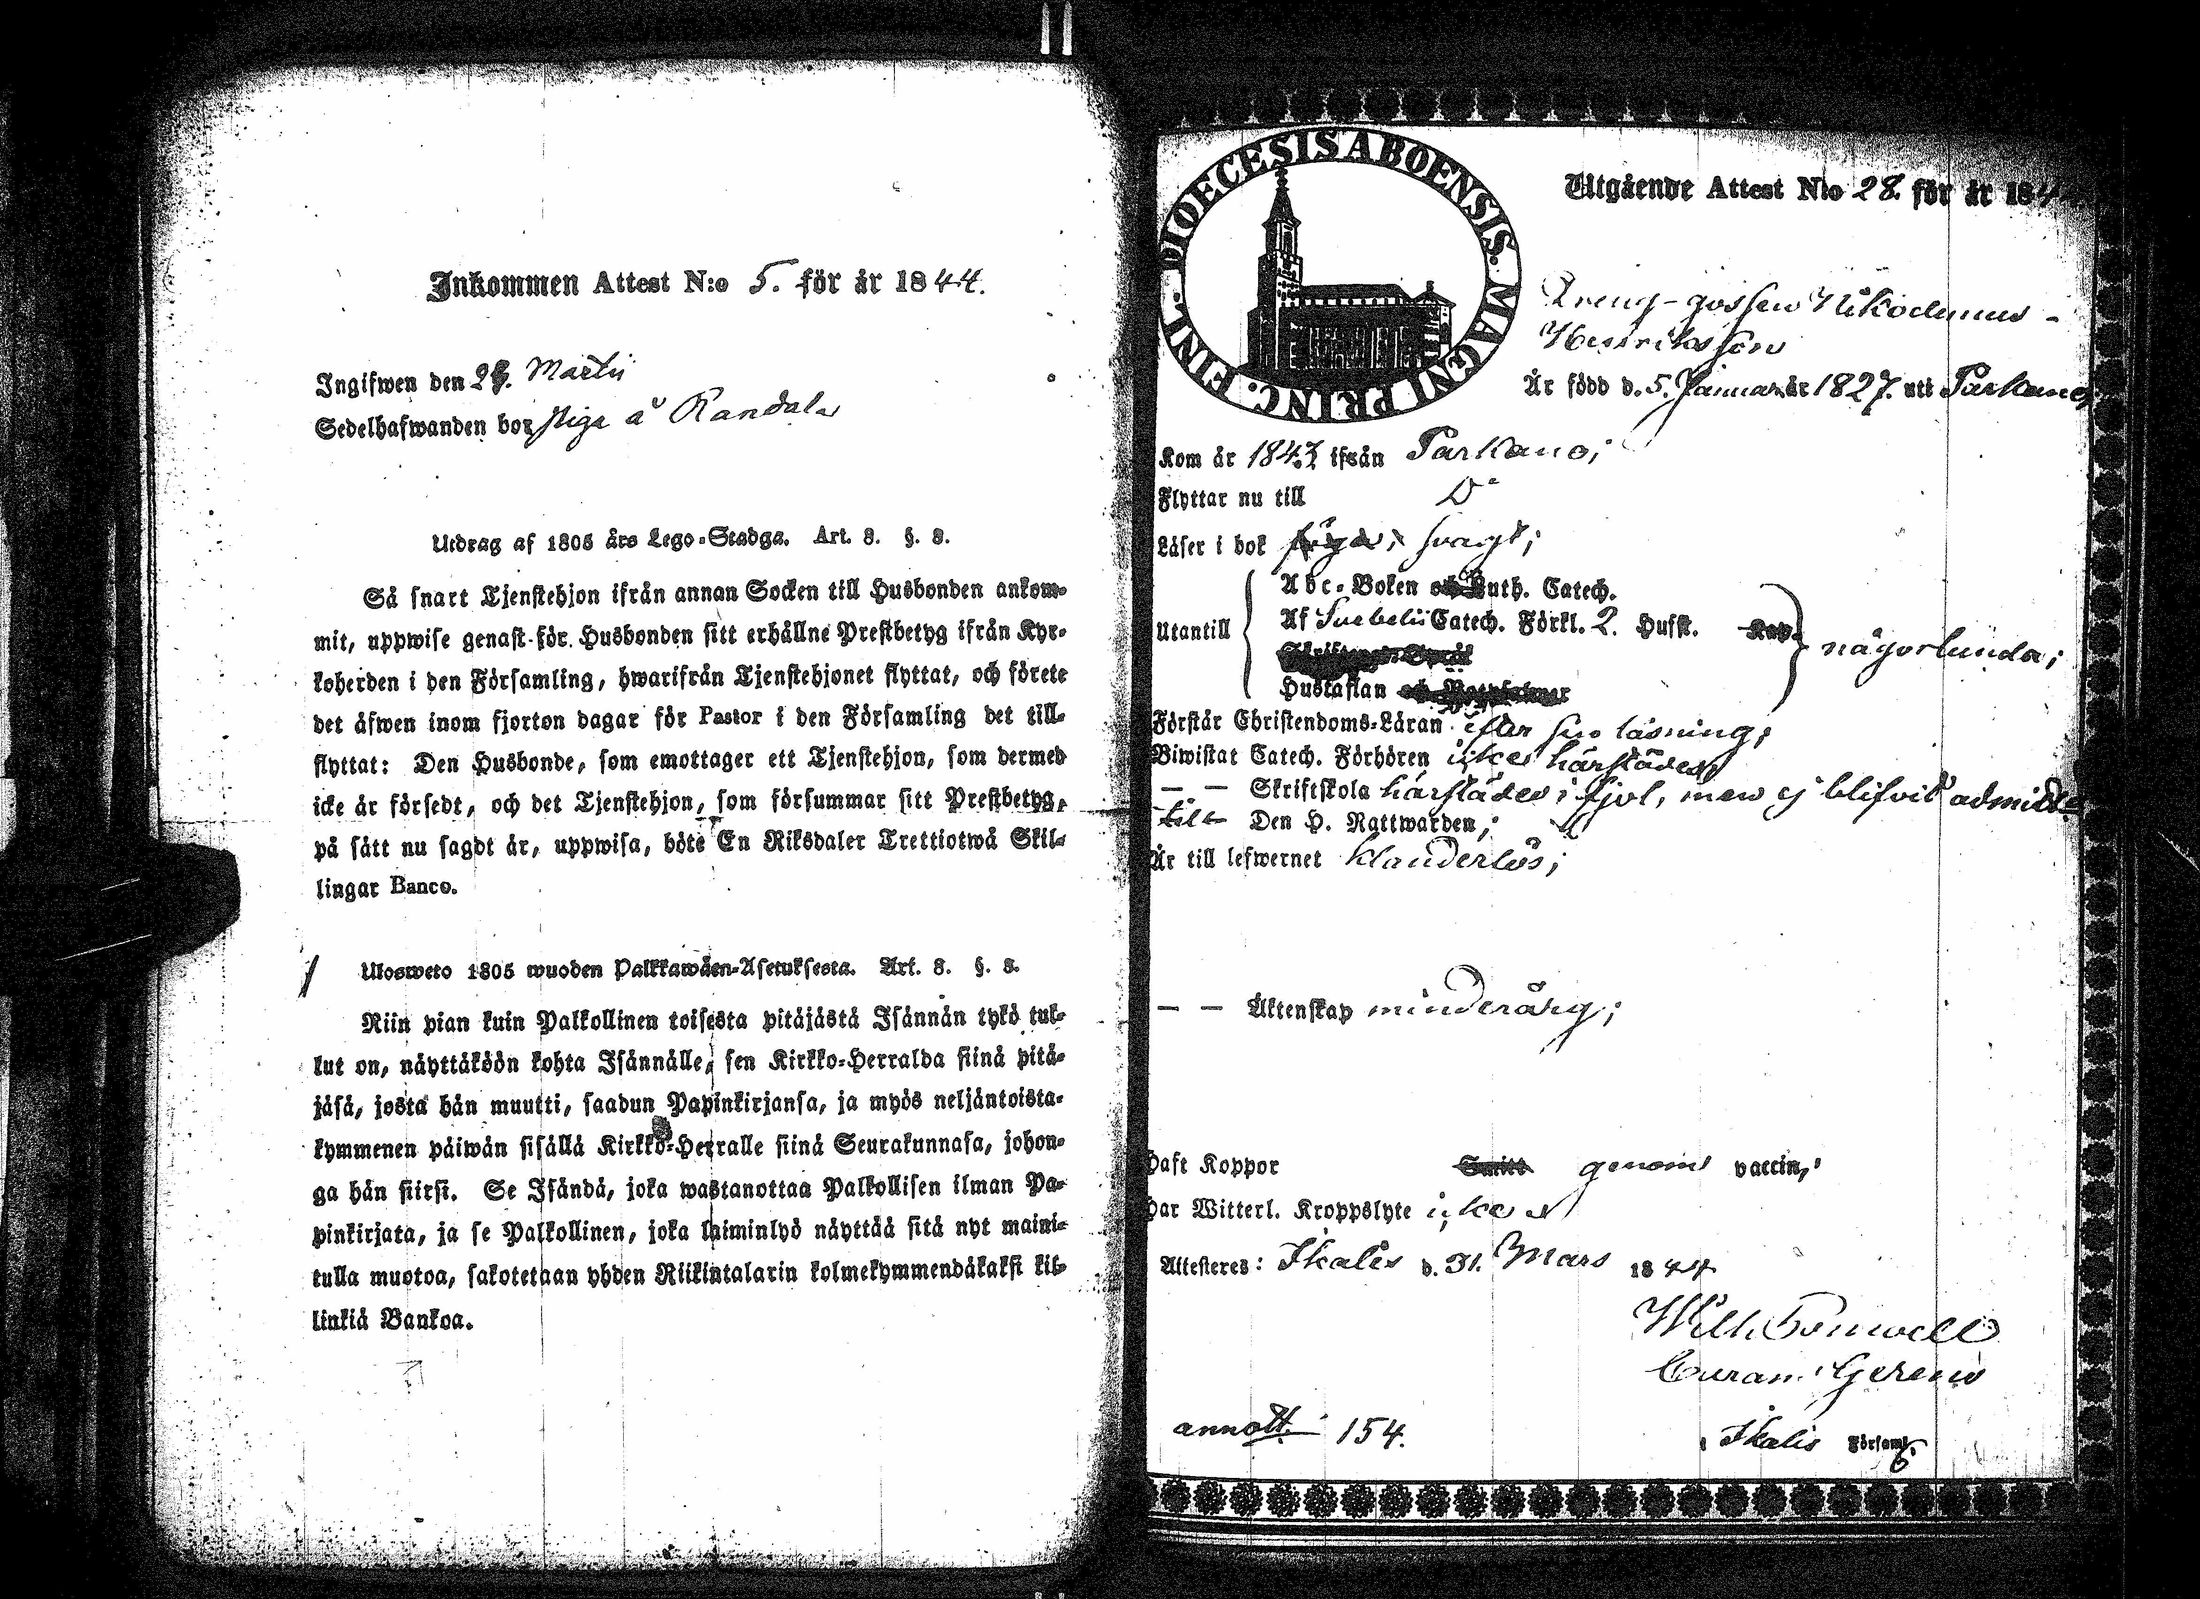 Inkommen Attest N:o 5. för år 1844.
Ingifwen den 29. Martii
Sedelhafwanden bor piga å Randala
Utdrag af 1805 års Lego-Stadga. Art. 8. §. 8.
Så snart Tjenstehjon ifrån annan Socken till Husbonden ankom-
mit, uppwise genast för Husbonden sitt erhållne Prestbetyg ifrån Kyr-
koherden i den Församling, hwarifrån Tjenstehjonet flyttat, och förete
det äfwen inom fjorton dagar för Pastor i den Församling det till-
flyttat: Den Husbonde, som emottager ett Tjenstehjon, som dermed
icke är försedt, och det Tjenstehjon, som försummar sitt Prestbetyg,
på sätt nu sagdt är, uppwisa, böte En Riksdaler Trettiotwå Skil-
lingar Banco.
Ulosweto 1805 wuoden Palkkawäen-Asetuksesta. Art. 8. §. 8.
Niin pian kuin Palkollinen toisesta pitäjästä Isännän tykö tul-
lut on, näyttäköön kohta Isännälle, sen Kirkko-Herralda siinä pitä-
jäsä, josta hän muutti, saadun Papinkirjansa, ja myös neljäntoista-
kymmenen päiwän sisällä Kirkko-Herralle siinä Seurakunnasa, johon-
ga hän siirsi. Se Isändä, joka wastanottaa Palkollisen ilman Pa-
pinkirjata, ja se Palkollinen, joka laiminlyö näyttää sitä nyt maini-
tulla muotoa, sakotetaan yhden Riikintalarin kolmekymmendäkaksi kil-
linkiä Bankoa.
DIOECESIS ABOENSIS. MAGNI PRINC. FINL.
Utgående Attest No 28. för år 184
Dreng-gossen Nikodemus
Henriksson
Är född d. 5. Januar. år 1827. uti Parkano;
Kom år 1843 ifrån Parkano;
Flyttar nu till D°
Läser i bok svagt;
Utantill
Abc-Boken Luth. Catech.
Af Svebelii Catech. Förkl. 2. Hust.
Hustaflan
någorlunda;
Förstår Christendoms-Läran efter sin läsning;
Biwistat Catech. Förhören icke härstädes;
— — Skriftskola härstädes i fjol, men ej blifvit admitt.
till Den H. Nattwarden;
Är till lefwernet klanderlös;
— — Äktenskap minderårig;
Haft Koppor genom vaccin;
Har Witterl. Kroppslyte icke
Attesteres: Ikalis d. 31. Mars 1844
Wilh.
Curam Gerens
i Ikalis Församl.
annott. 154.